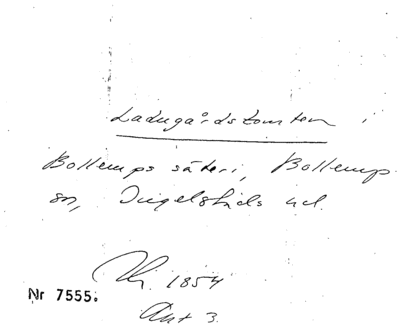 Ladugårdstomten i
Bollerups säteri, Bollerup
sn, Ingelstads hd.
1854
Nr 7555.
Ant 3.